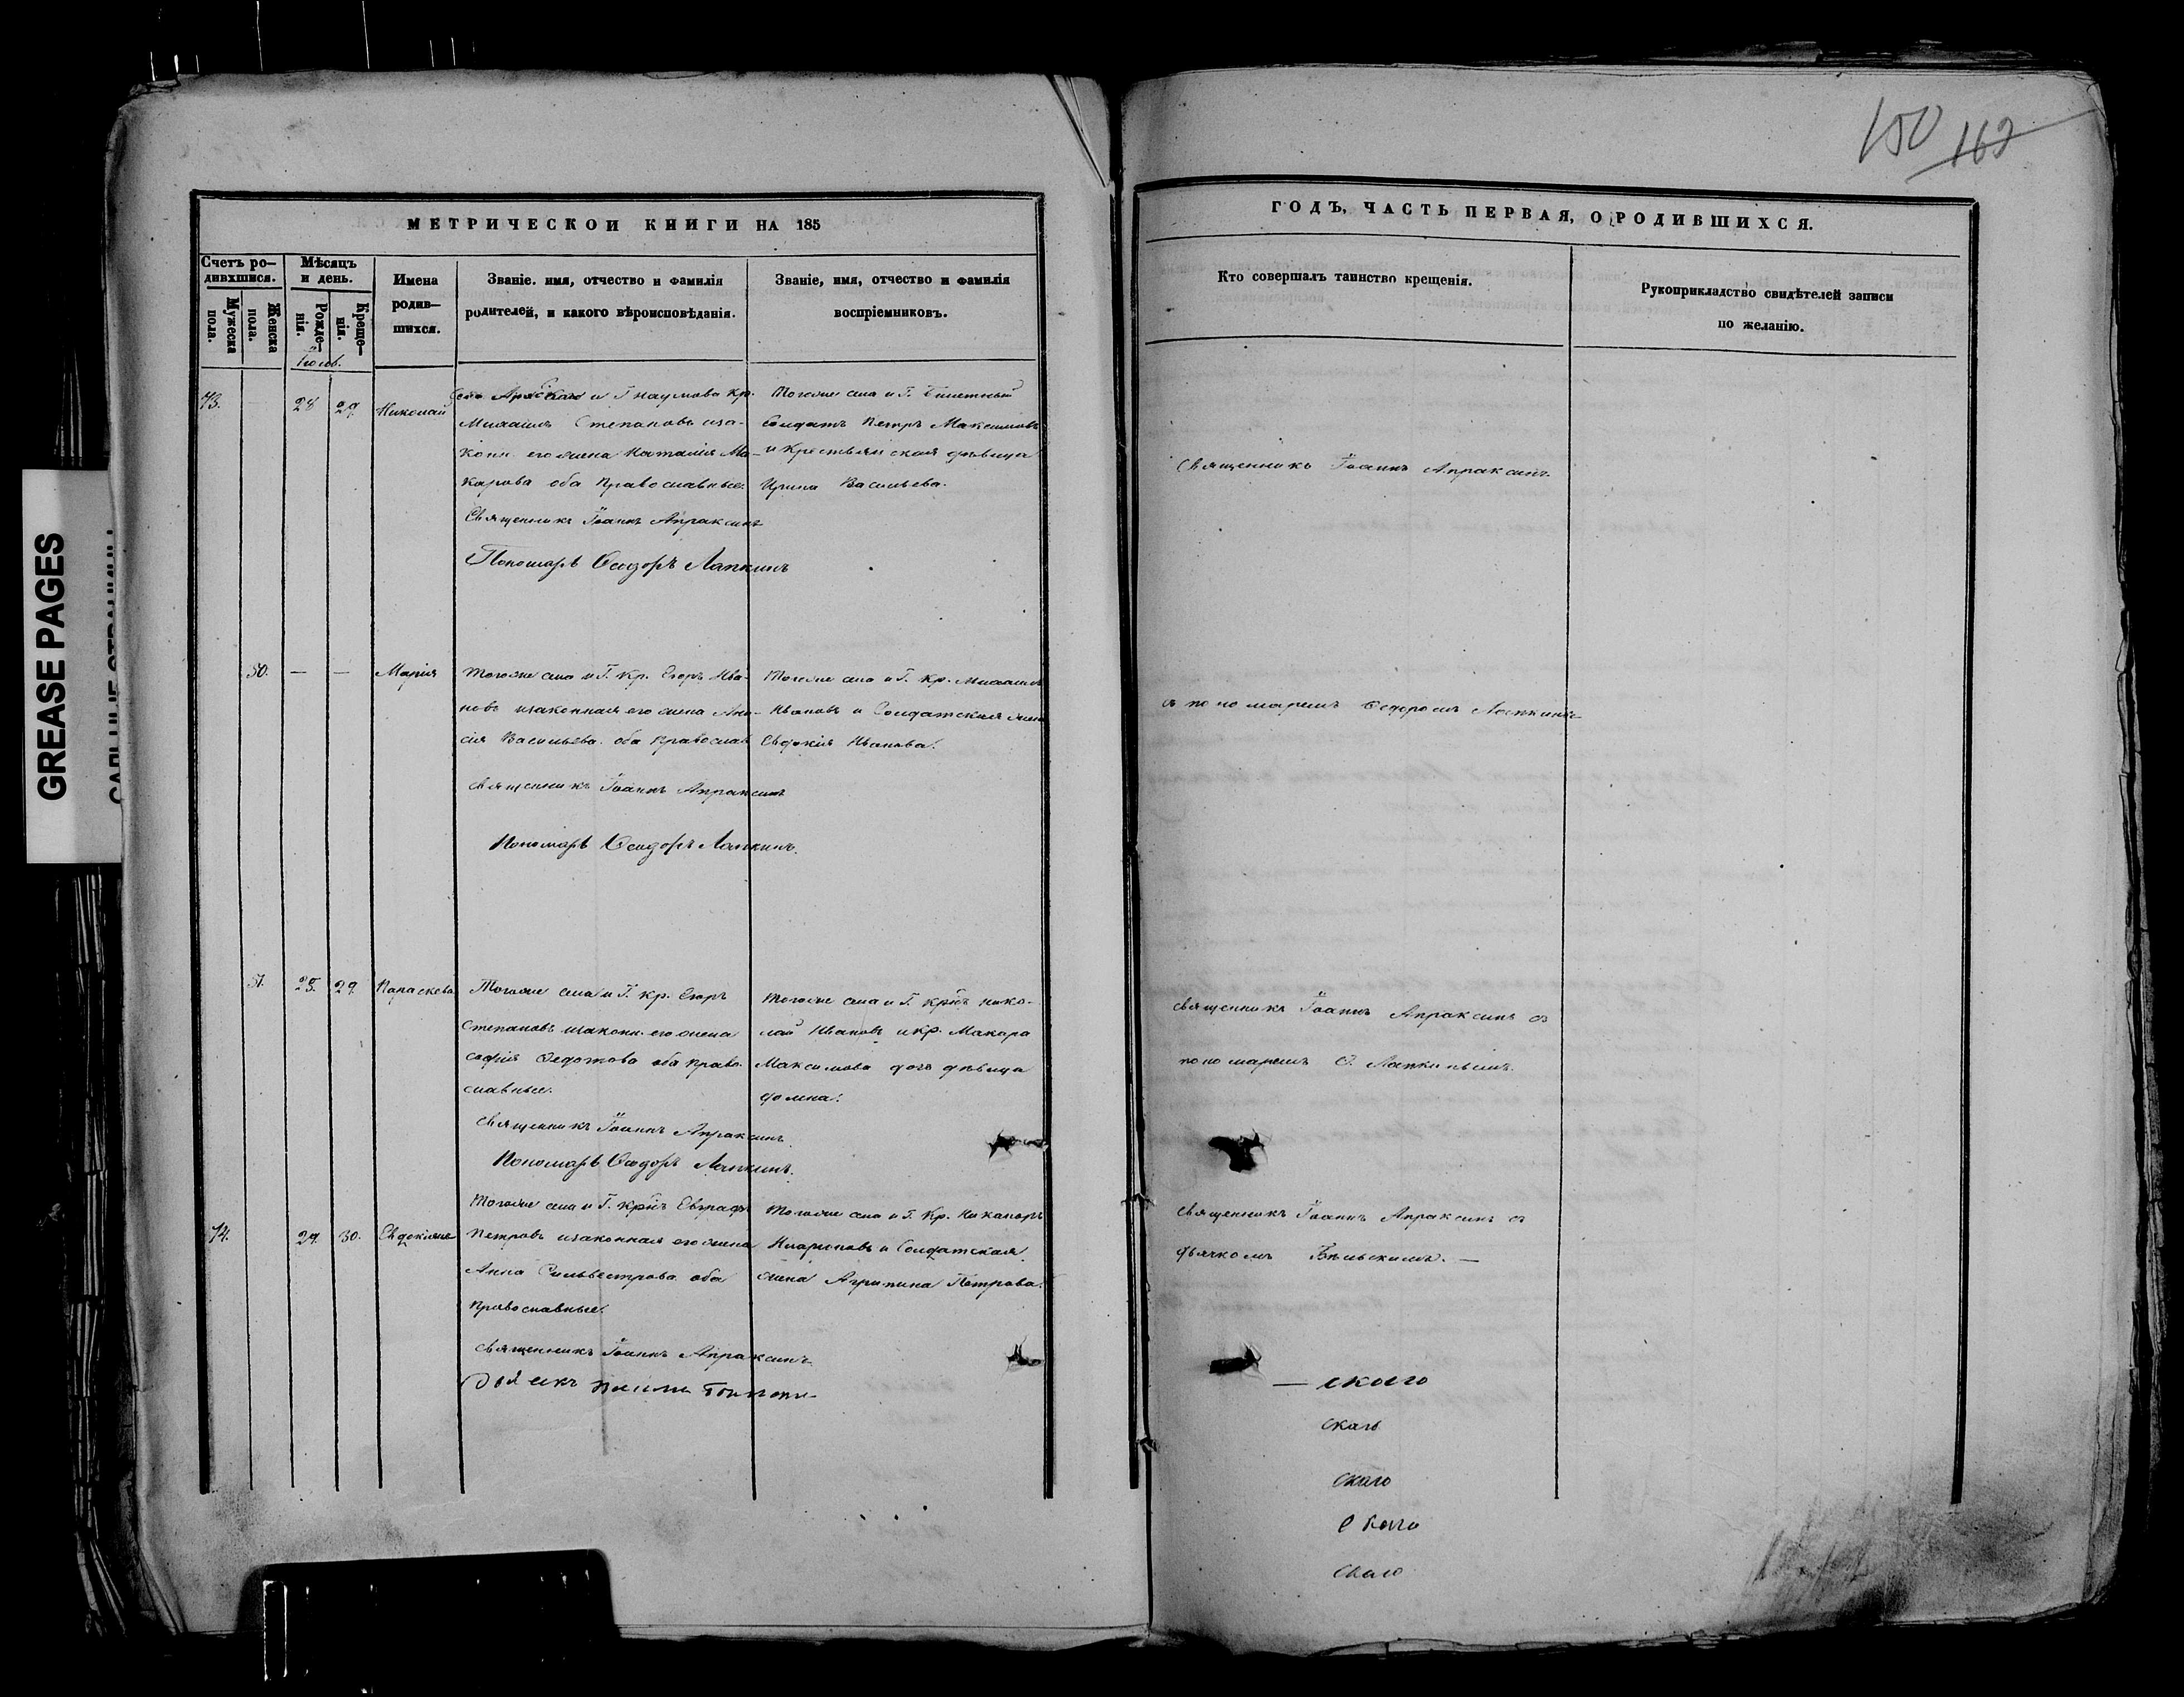 150 169
GREASE PAGES
МЕТРИЧЕСКОЙ КНИГИ НА 185
Счетъ ро-
дившихся.
Мужеска
пола.
Женска
пола.
Мѣсяцъ
и день.
Рожде-
нія.
Креще-
нія.
Имена
родив-
шихся.
Званіе. имя, отчество и фамилія
родителей, и какого вѣроисповѣданія.
Званіе, имя, отчество и фамилія
воспріемниковъ.
ГОДЪ, ЧАСТЬ ПЕРВАЯ, О РОДИВШИХСЯ.
Кто совершалъ таинство крещенія.
Рукоприкладство свидѣтелей записи
по желанію.
73.
28
29.
Николай
и Г Наумова кр.
Михаилъ Степановъ иза-
конн. его жена Наталія Ма-
карова оба православные.
Священникъ Іоаннъ Апраксинъ
Пономарь Ѳеодоръ Лапкинъ
Тогоже села и Г. билетный
Солдатъ Петръ Максимовъ
и крестьянская дѣвица
Ирина Васильева.
Священникъ Іоаннъ Апраксинъ.
50.
—
—
Марія
Тогоже села и Г. кр. Егоръ Ива-
новъ изаконная его жена
Васильева. оба Православ
Священникъ Іоаннъ Апраксинъ
Пономарь Ѳеодоръ Лапкинъ.
Тогоже села и Г. кр. Михаилъ
Ивановъ и Солдатская жена
Евдокія Иванова.
съ пономаремъ Ѳедоромъ
51.
25.
29.
Параскева
Тогоже села и Г. кр. Егоръ
Степановъ изаконн. его жена
Софія Ѳедотова оба право-
славные.
Священникъ Іоаннъ Апраксинъ
Пономарь Ѳеодоръ Лапкинъ.
Тогоже села и Г. Нико-
лай Ивановъ и кр. Макара
Максимова дочь дѣвица
Домна.
Священникъ Іоаннъ Апраксинъ съ
пономаремъ Ѳ. Лапкинымъ.
74.
29.
30.
Евдокимъ
Тогоже села и Г. Евграфъ
Петровъ изаконная его жена
Анна Сильвестрова оба
православные.
Священникъ Іоаннъ Апраксинъ
Тогоже села и Г. кр. Никаноръ
Иларионовъ и Солдатская
жена Агрипина Петрова.
Священникъ Іоаннъ Апраксинъ съ
дьячкомъ Бѣльскимъ. —
— скаго
скаго
скаго
скаго